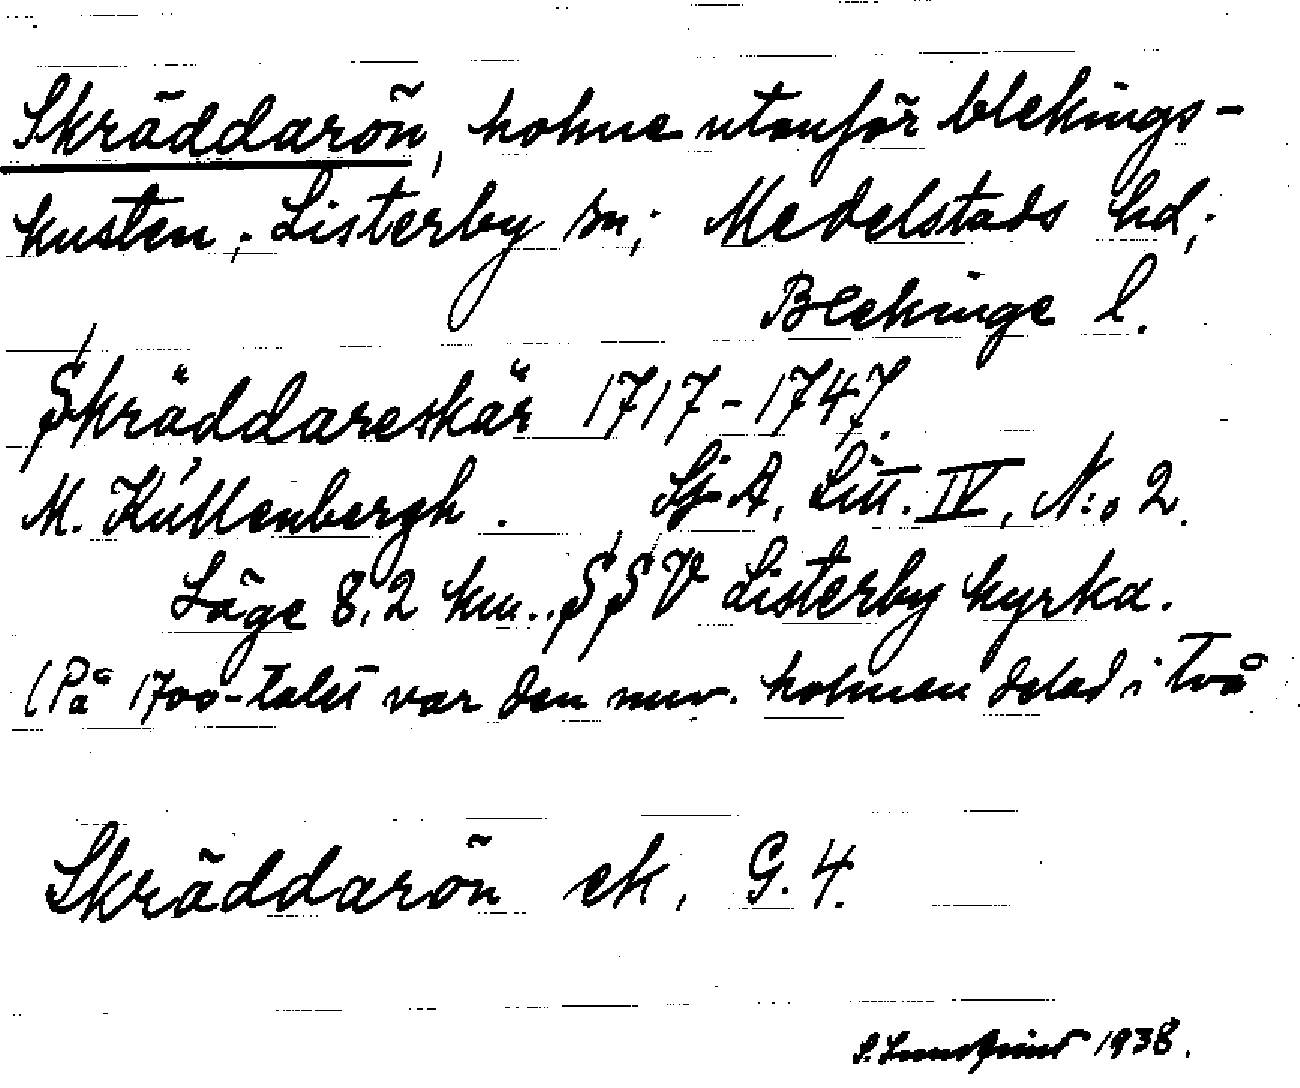 Skräddarön, holme utanför blekings-
kusten; Listerby sn; Medelstads hd;
Blekinge l.
Skräddareskär 1717-1747.
M. Küllenbergh. Sj A, Litt. IV, N:o 2.
Läge 8,2 km. SSV Listerby kyrka.
(På 1700-talet var den nuv. holmen delad i två
Skräddarön ek. G. 4.
1938.